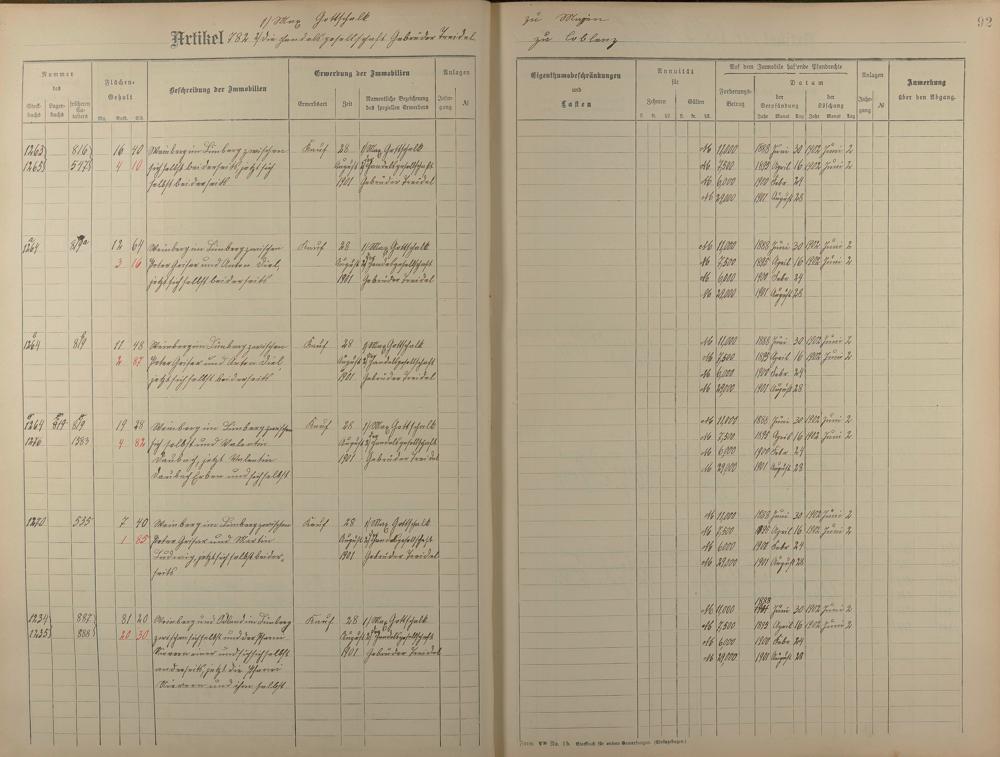 1) Max Gottschalk
Artikel 782 2) die Handelsgesellschaft Gebrüder Treidel
zu Mayen
zu Coblenz
92
Nummer
des
Flächen-
Gehalt
Beschreibung der Immobilien
Erwerbung der Immobilien
Anlagen
Erwerbsart Zeit Namentliche Bezeichnung
des speziellen Erwerbers
Jahr-
gang №
Eigenthumsbeschränkungen
und
Lasten
Annuität
für
Zehnten Gülten
Forderungs-
Betrag
Auf dem Immobile haftende Pfandrechte
Datum
der
Verpfändung
der
Löschung
Jahr Monat Tag Jahr Monat Tag
Anlagen
Jahr-
gang №
Anmerkung
über den Abgang.
1263 816 16 40 Weinberg im Limberg zwischen Kauf 28 1) Max Gottschalk
1265 547 4 10 sich selbst beiderseits, jetzt sich August 2) Handelsgesellschaft
selbst beiderseits 1901 Gebrüder Treidel
M 11,000 1888 Juni 30 1902 Juni 2
M 7,500 1895 April 16 1902 Juni 2
M 6,000 1900 Febr. 24
M 29,000 1901 August 28
1264 819 12 64 Weinberg im Limberg zwischen Kauf 28 1) Max Gottschalk
3 16 Peter Geisar und Anton Diel, August 2) Handelsgesellschaft
jetzt sich selbst beiderseits 1901 Gebrüder Treidel
M 11,000 1888 Juni 30 1902 Juni 2
M 7,500 1895 April 16 1902 Juni 2
M 6,000 1900 Febr. 24
M 29,000 1901 August 28
1264 819 11 48 Weinberg im Limberg zwischen Kauf 28 1) Max Gottschalk
2 87 Peter Geisar und Anton Diel, August 2) Handelsgesellschaft
jetzt sich selbst beiderseits 1901 Gebrüder Treidel
M 11,000 1888 Juni 30 1902 Juni 2
M 7,500 1895 April 16 1902 Juni 2
M 6,000 1900 Febr. 24
M 29,000 1901 August 28
1264 819 819 19 28 Weinberg im Limberg zwischen Kauf 28 1) Max Gottschalk
1276 1383 4 82 sich selbst und Valentin August 2) Handelsgesellschaft
Daubach, jetzt Valentin 1901 Gebrüder Treidel
Daubach Erben und sich selbst
M 11,000 1888 Juni 30 1902 Juni 2
M 7,500 1895 April 16 1902 Juni 2
M 6,000 1900 Febr. 24
M 29,000 1901 August 28
1270 535 7 40 Weinberg im Limberg zwischen Kauf 28 1) Max Gottschalk
1 85 Peter Geisar und Martin August 2) Handelsgesellschaft
Ludwig, jetzt sich selbst beider- 1901 Gebrüder Treidel
seits
M 11,000 1888 Juni 30 1902 Juni 2
M 7,500 1895 April 16 1902 Juni 2
M 6,000 1900 Febr. 24
M 29,000 1901 August 28
1234 887 81 20 Weinberg und im Limberg Kauf 28 1) Max Gottschalk
1235 888 20 30 zwischen sich selbst und der Pfarrei August 2) Handelsgesellschaft
einer und sich selbst 1901 Gebrüder Treidel
anderseits, jetzt die Pfarrei
und ihm selbst
1888
M 11,000 Juni 30 1902 Juni 2
M 7,500 1895 April 16 1902 Juni 2
M 6,000 1900 Febr. 24
M 29,000 1901 August 28